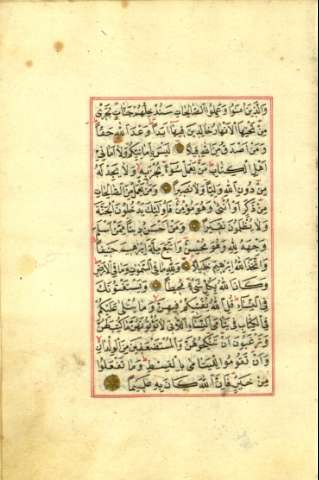 وَالَّذِينَ آمَنُوا وَعَمِلُوا الصَّالِحَاتِ سَنُدْخِلُهُمْ جَنَّاتٍ تَجْرِي
مِنْ تَحْتِهَا الْأَنْهَارُ خَالِدِينَ فِيهَا أَبَدًا وَعْدَ اللَّهِ حَقًّا
وَمَنْ أَصْدَقُ مِنَ اللَّهِ قِيلًا لَيْسَ بِأَمَانِيِّكُمْ وَلَا أَمَانِيِّ
أَهْلِ الْكِتَابِ مَنْ يَعْمَلْ سُوءًا يُجْزَ بِهِ وَلَا يَجِدْ لَهُ
مِنْ دُونِ اللَّهِ وَلِيًّا وَلَا نَصِيرًا وَمَنْ يَعْمَلْ مِنَ الصَّالِحَاتِ
مِنْ ذَكَرٍ أَوْ أُنْثَى وَهُوَ مُؤْمِنٌ فَأُولَئِكَ يَدْخُلُونَ الْجَنَّةَ
وَلَا يُظْلَمُونَ نَقِيرًا وَمَنْ أَحْسَنُ دِينًا مِمَّنْ أَسْلَمَ
وَجْهَهُ لِلَّهِ وَهُوَ مُحْسِنٌ وَاتَّبَعَ مِلَّةَ إِبْرَاهِيمَ حَنِيفًا
وَاتَّخَذَ اللَّهُ إِبْرَاهِيمَ خَلِيلًا وَلِلَّهِ مَا فِي السَّمَوَاتِ وَمَا فِي الْأَرْضِ
وَكَانَ اللَّهُ بِكُلِّ شَيْءٍ مُحِيطًا وَيَسْتَفْتُونَكَ
فِي النِّسَاءِ قُلِ اللَّهُ يُفْتِيكُمْ فِيهِنَّ وَمَا يُتْلَى عَلَيْكُمْ
فِي الْكِتَابِ فِي يَتَامَى النِّسَاءِ اللَّاتِي لَا تُؤْتُونَهُنَّ مَا كُتِبَ لَهُنَّ
وَتَرْغَبُونَ أَنْ تَنْكِحُوهُنَّ وَالْمُسْتَضْعَفِينَ مِنَ الْوِلْدَانِ
وَأَنْ تَقُومُوا لِلْيَتَامَى بِالْقِسْطِ وَمَا تَفْعَلُوا
مِنْ خَيْرٍ فَإِنَّ اللَّهَ كَانَ بِهِ عَلِيمًا